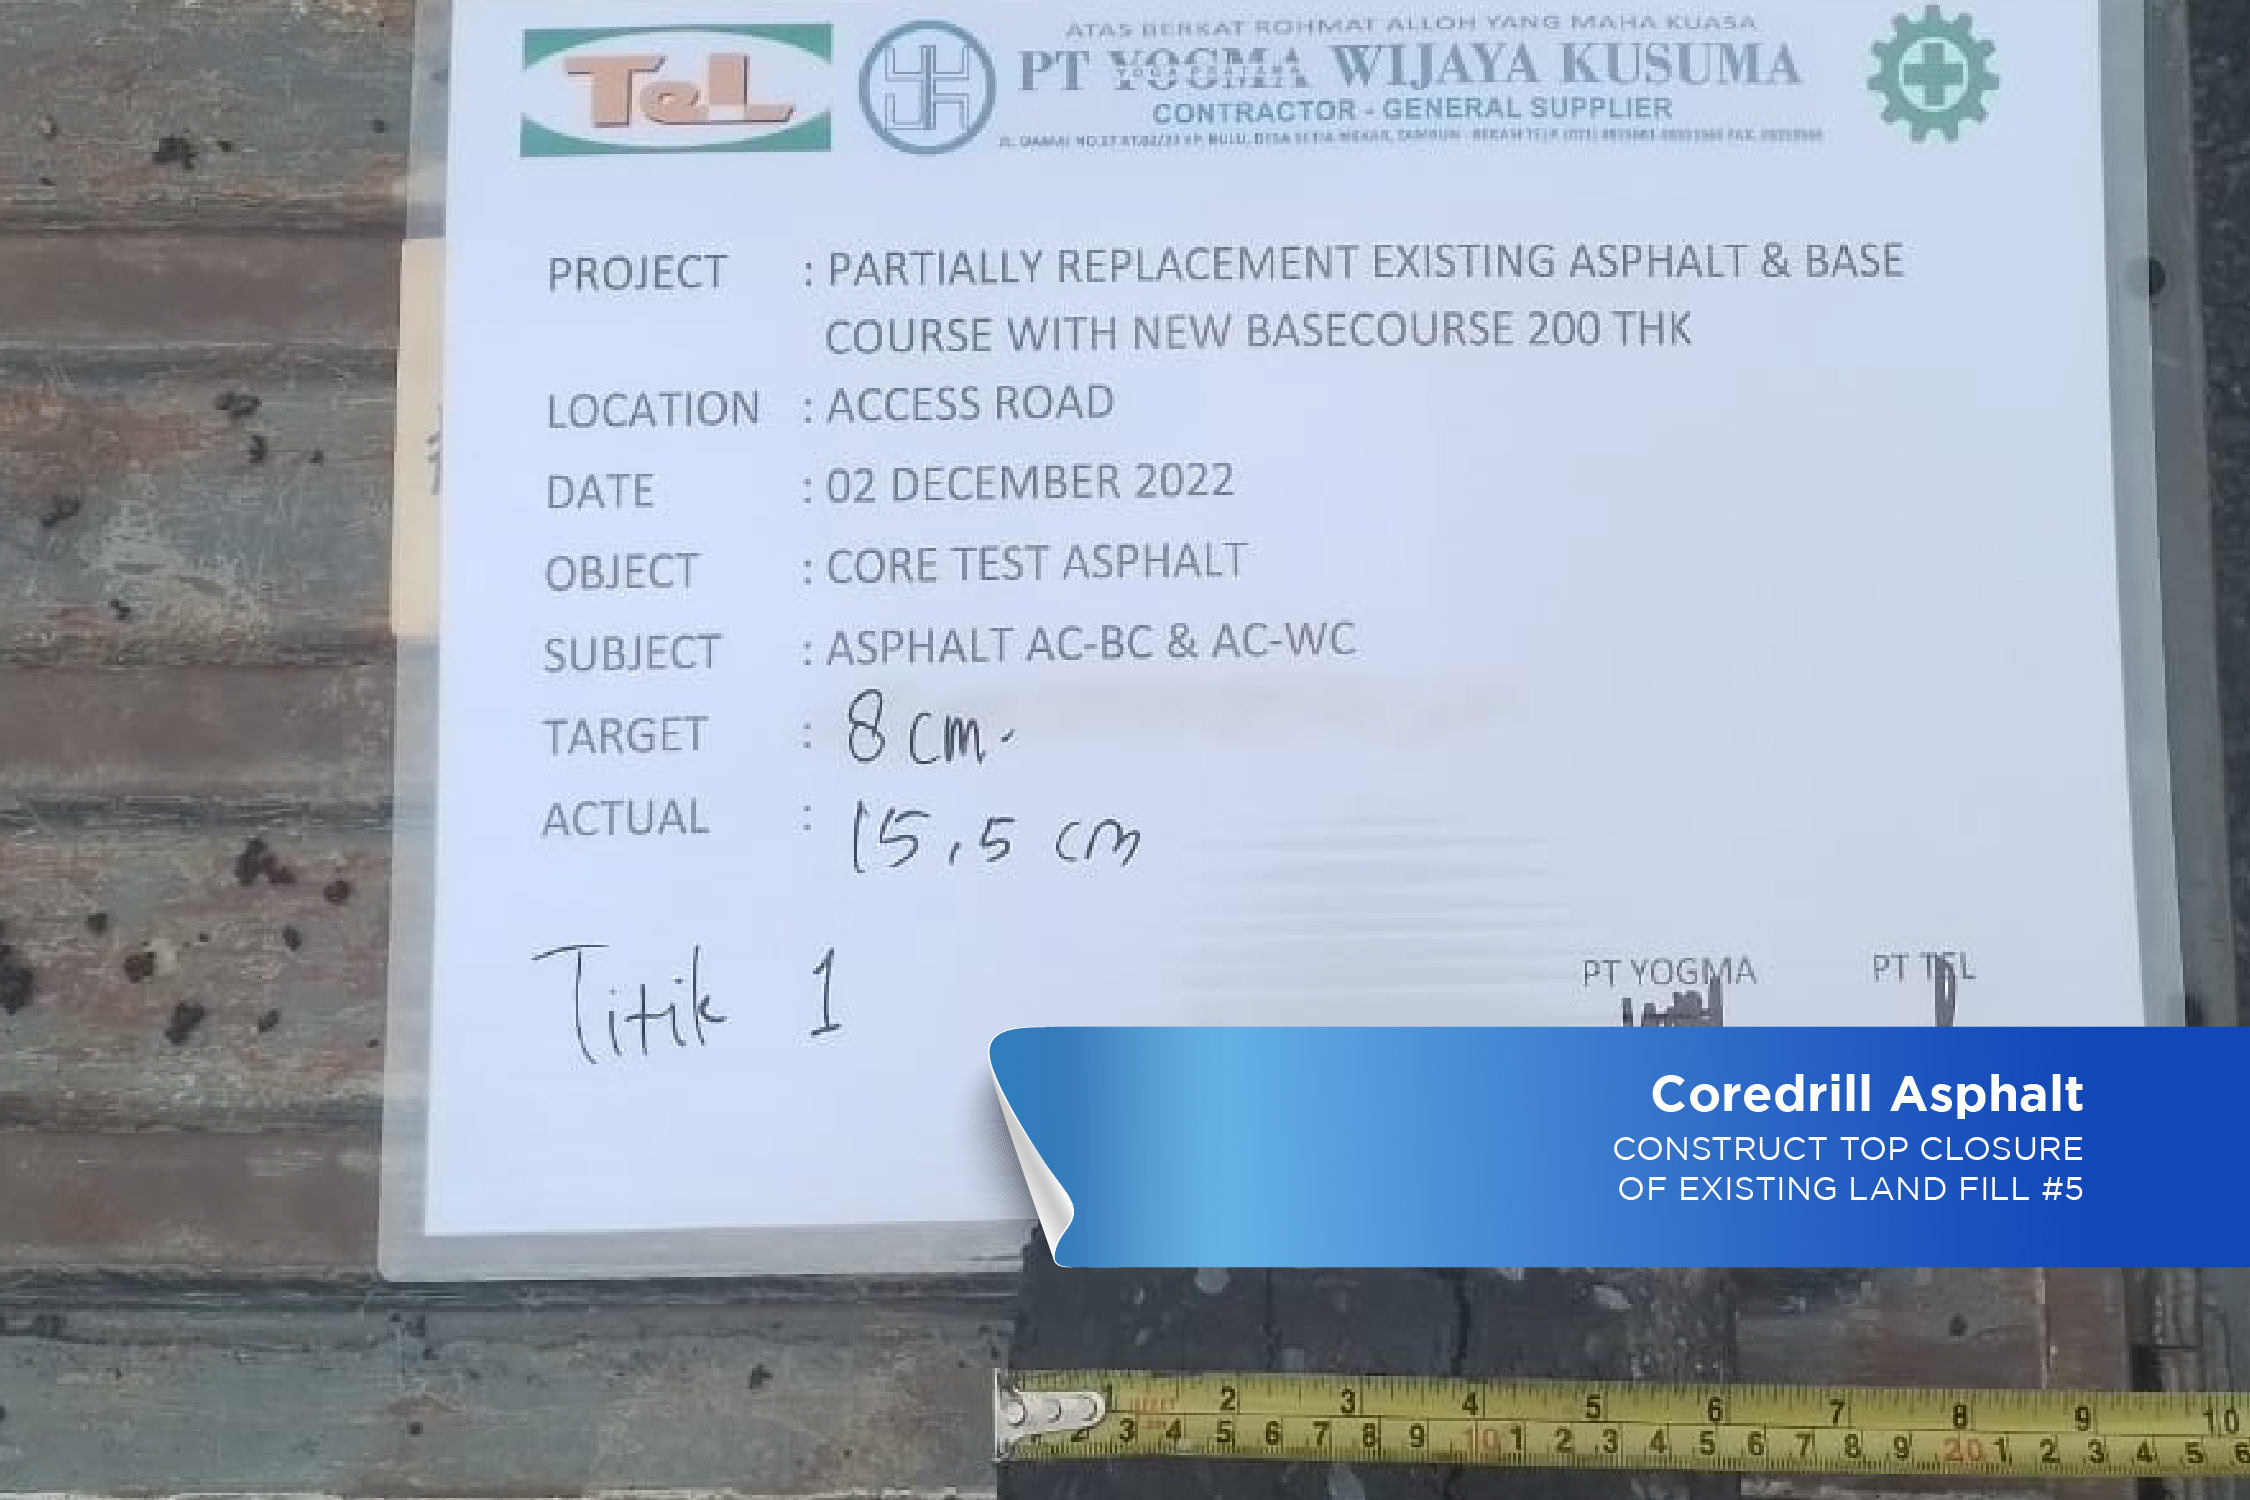 TeL
ATAS BERKAT ROHMAT ALLOH YANG MAHA KUASA
PT YOGMA WIJAYA KUSUMA
CONTRACTOR - GENERAL SUPPLIER
PROJECT : PARTIALLY REPLACEMENT EXISTING ASPHALT & BASE
COURSE WITH NEW BASECOURSE 200 THK
LOCATION : ACCESS ROAD
DATE : 02 DECEMBER 2022
OBJECT : CORE TEST ASPHALT
SUBJECT : ASPHALT AC-BC & AC-WC
TARGET : 8 cm.
ACTUAL : 15,5 cm
Titik 1
PT YOGMA PT TEL
Coredrill Asphalt
CONSTRUCT TOP CLOSURE
OF EXISTING LAND FILL #5
1 2 3 4 5 6 7 8 9 10
2 3 4 5 6 7 8 9 10 1 2 3 4 5 6 7 8 9 20 1 2 3 4 5 6